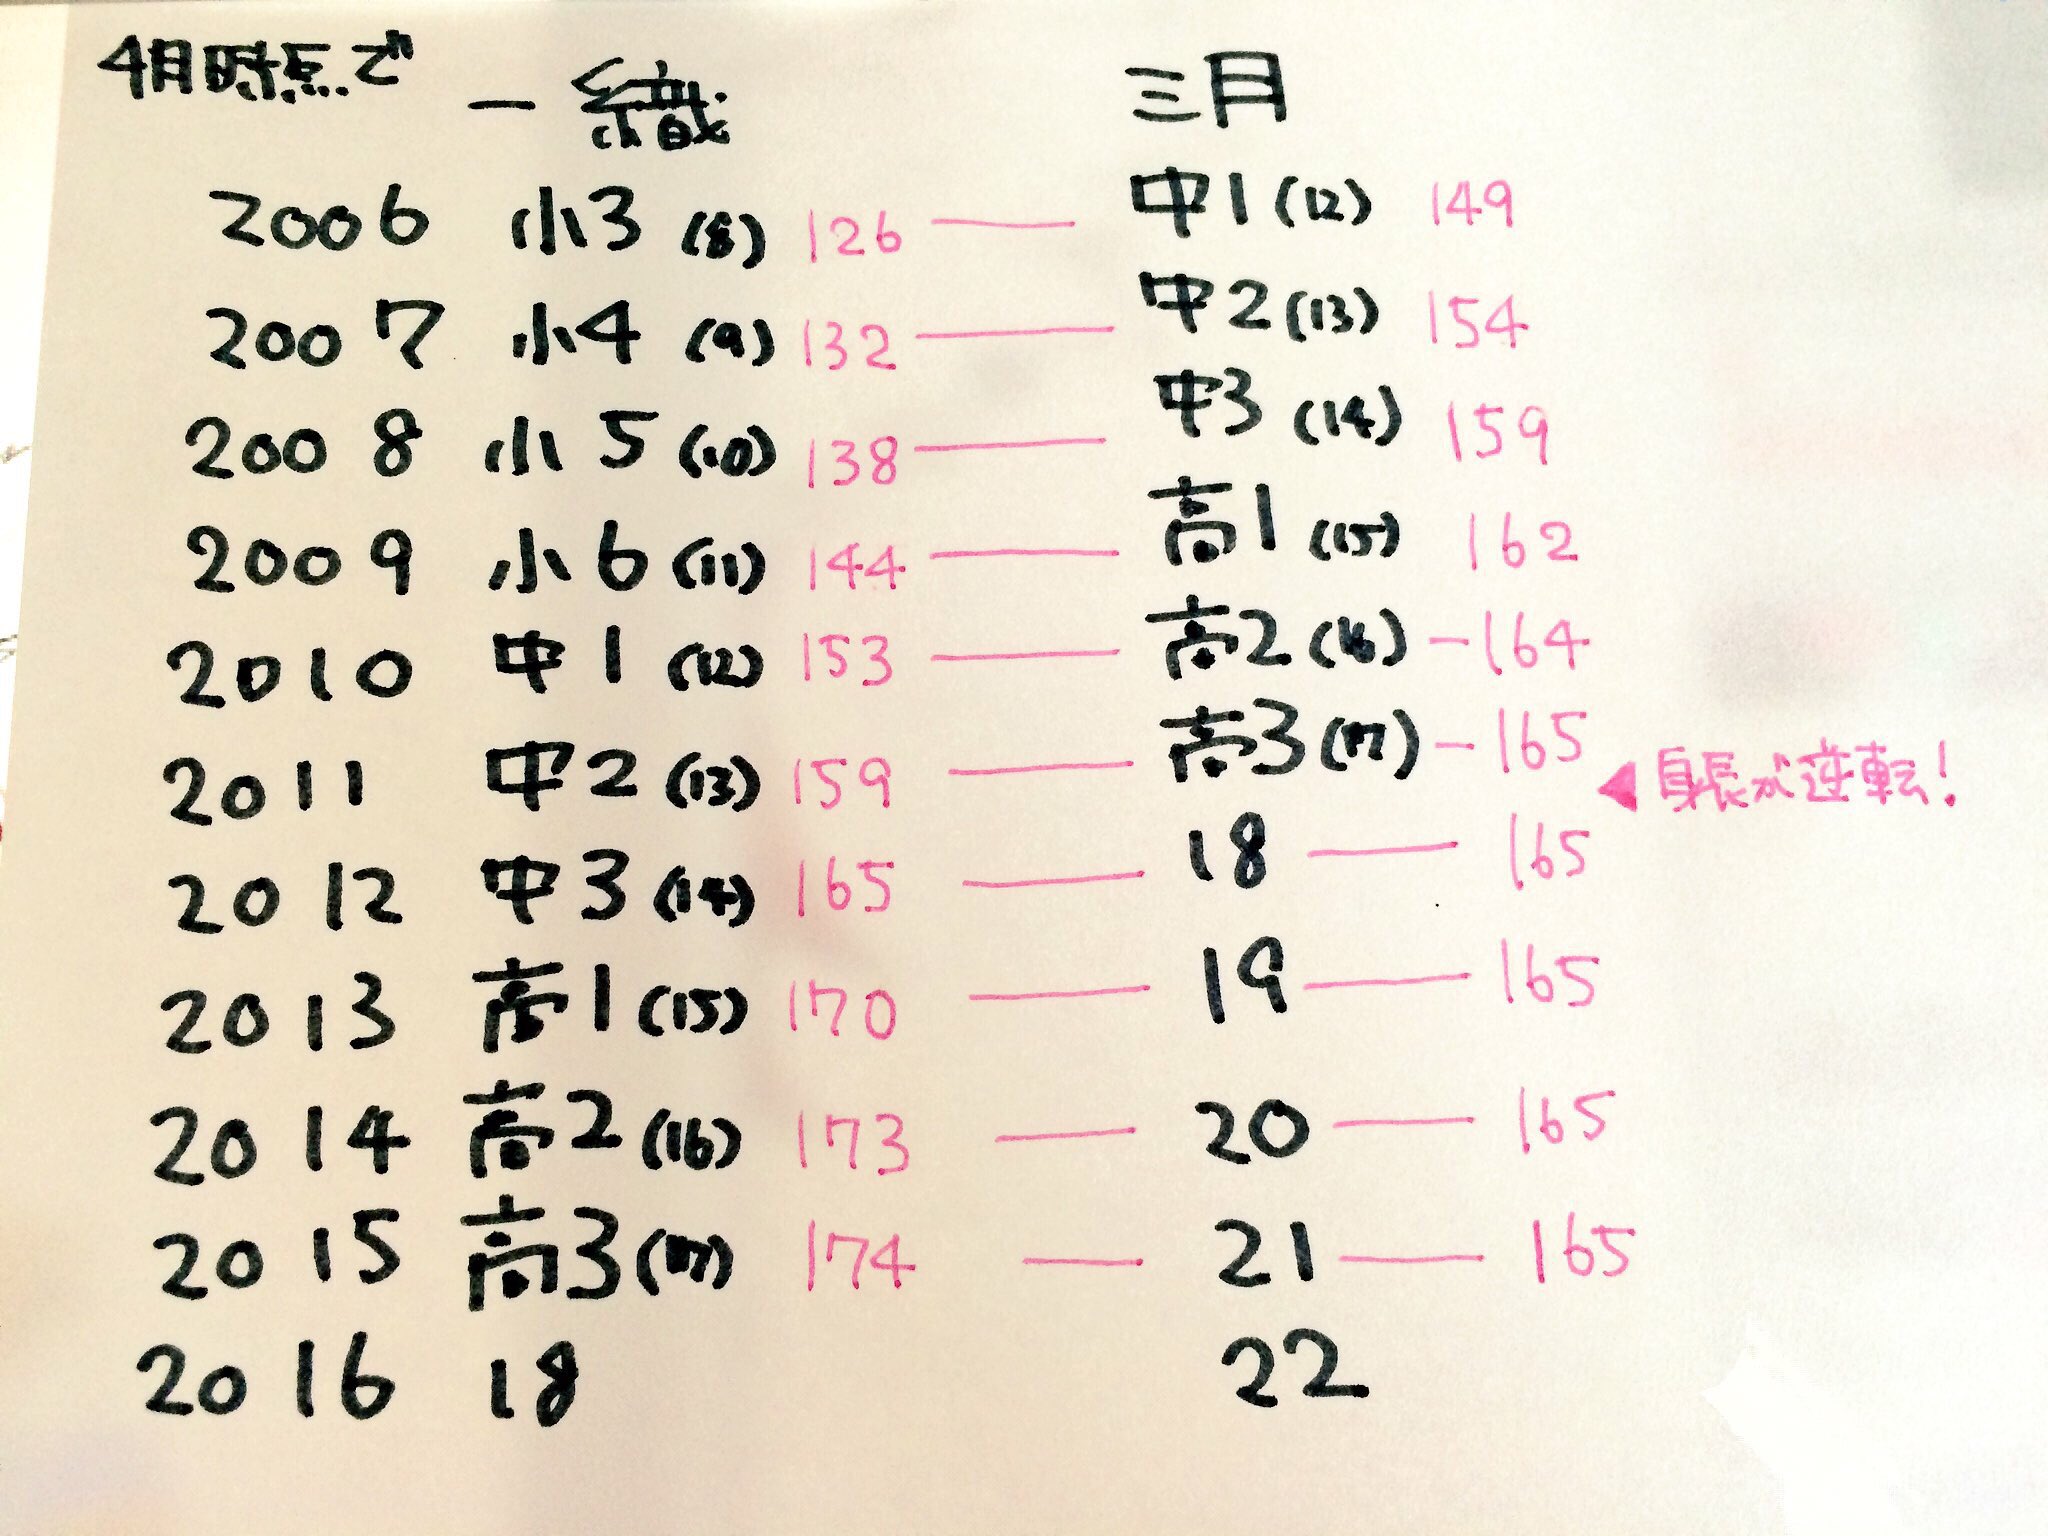 4月時点で 一織 三月
2006 小3 (8) 126 中1 (12) 149
2007 小4 (9) 132 中2 (13) 154
2008 小5 (10) 138 中3 (14) 159
2009 小6 (11) 144 高1 (15) 162
2010 中1 (12) 153 高2 (16) - 164
2011 中2 (13) 159 高3 (17) - 165
◀身長が逆転!
2012 中3 (14) 165 18 165
2013 高1 (15) 170 19 165
2014 高2 (16) 173 20 165
2015 高3 (17) 174 21 165
2016 18 22